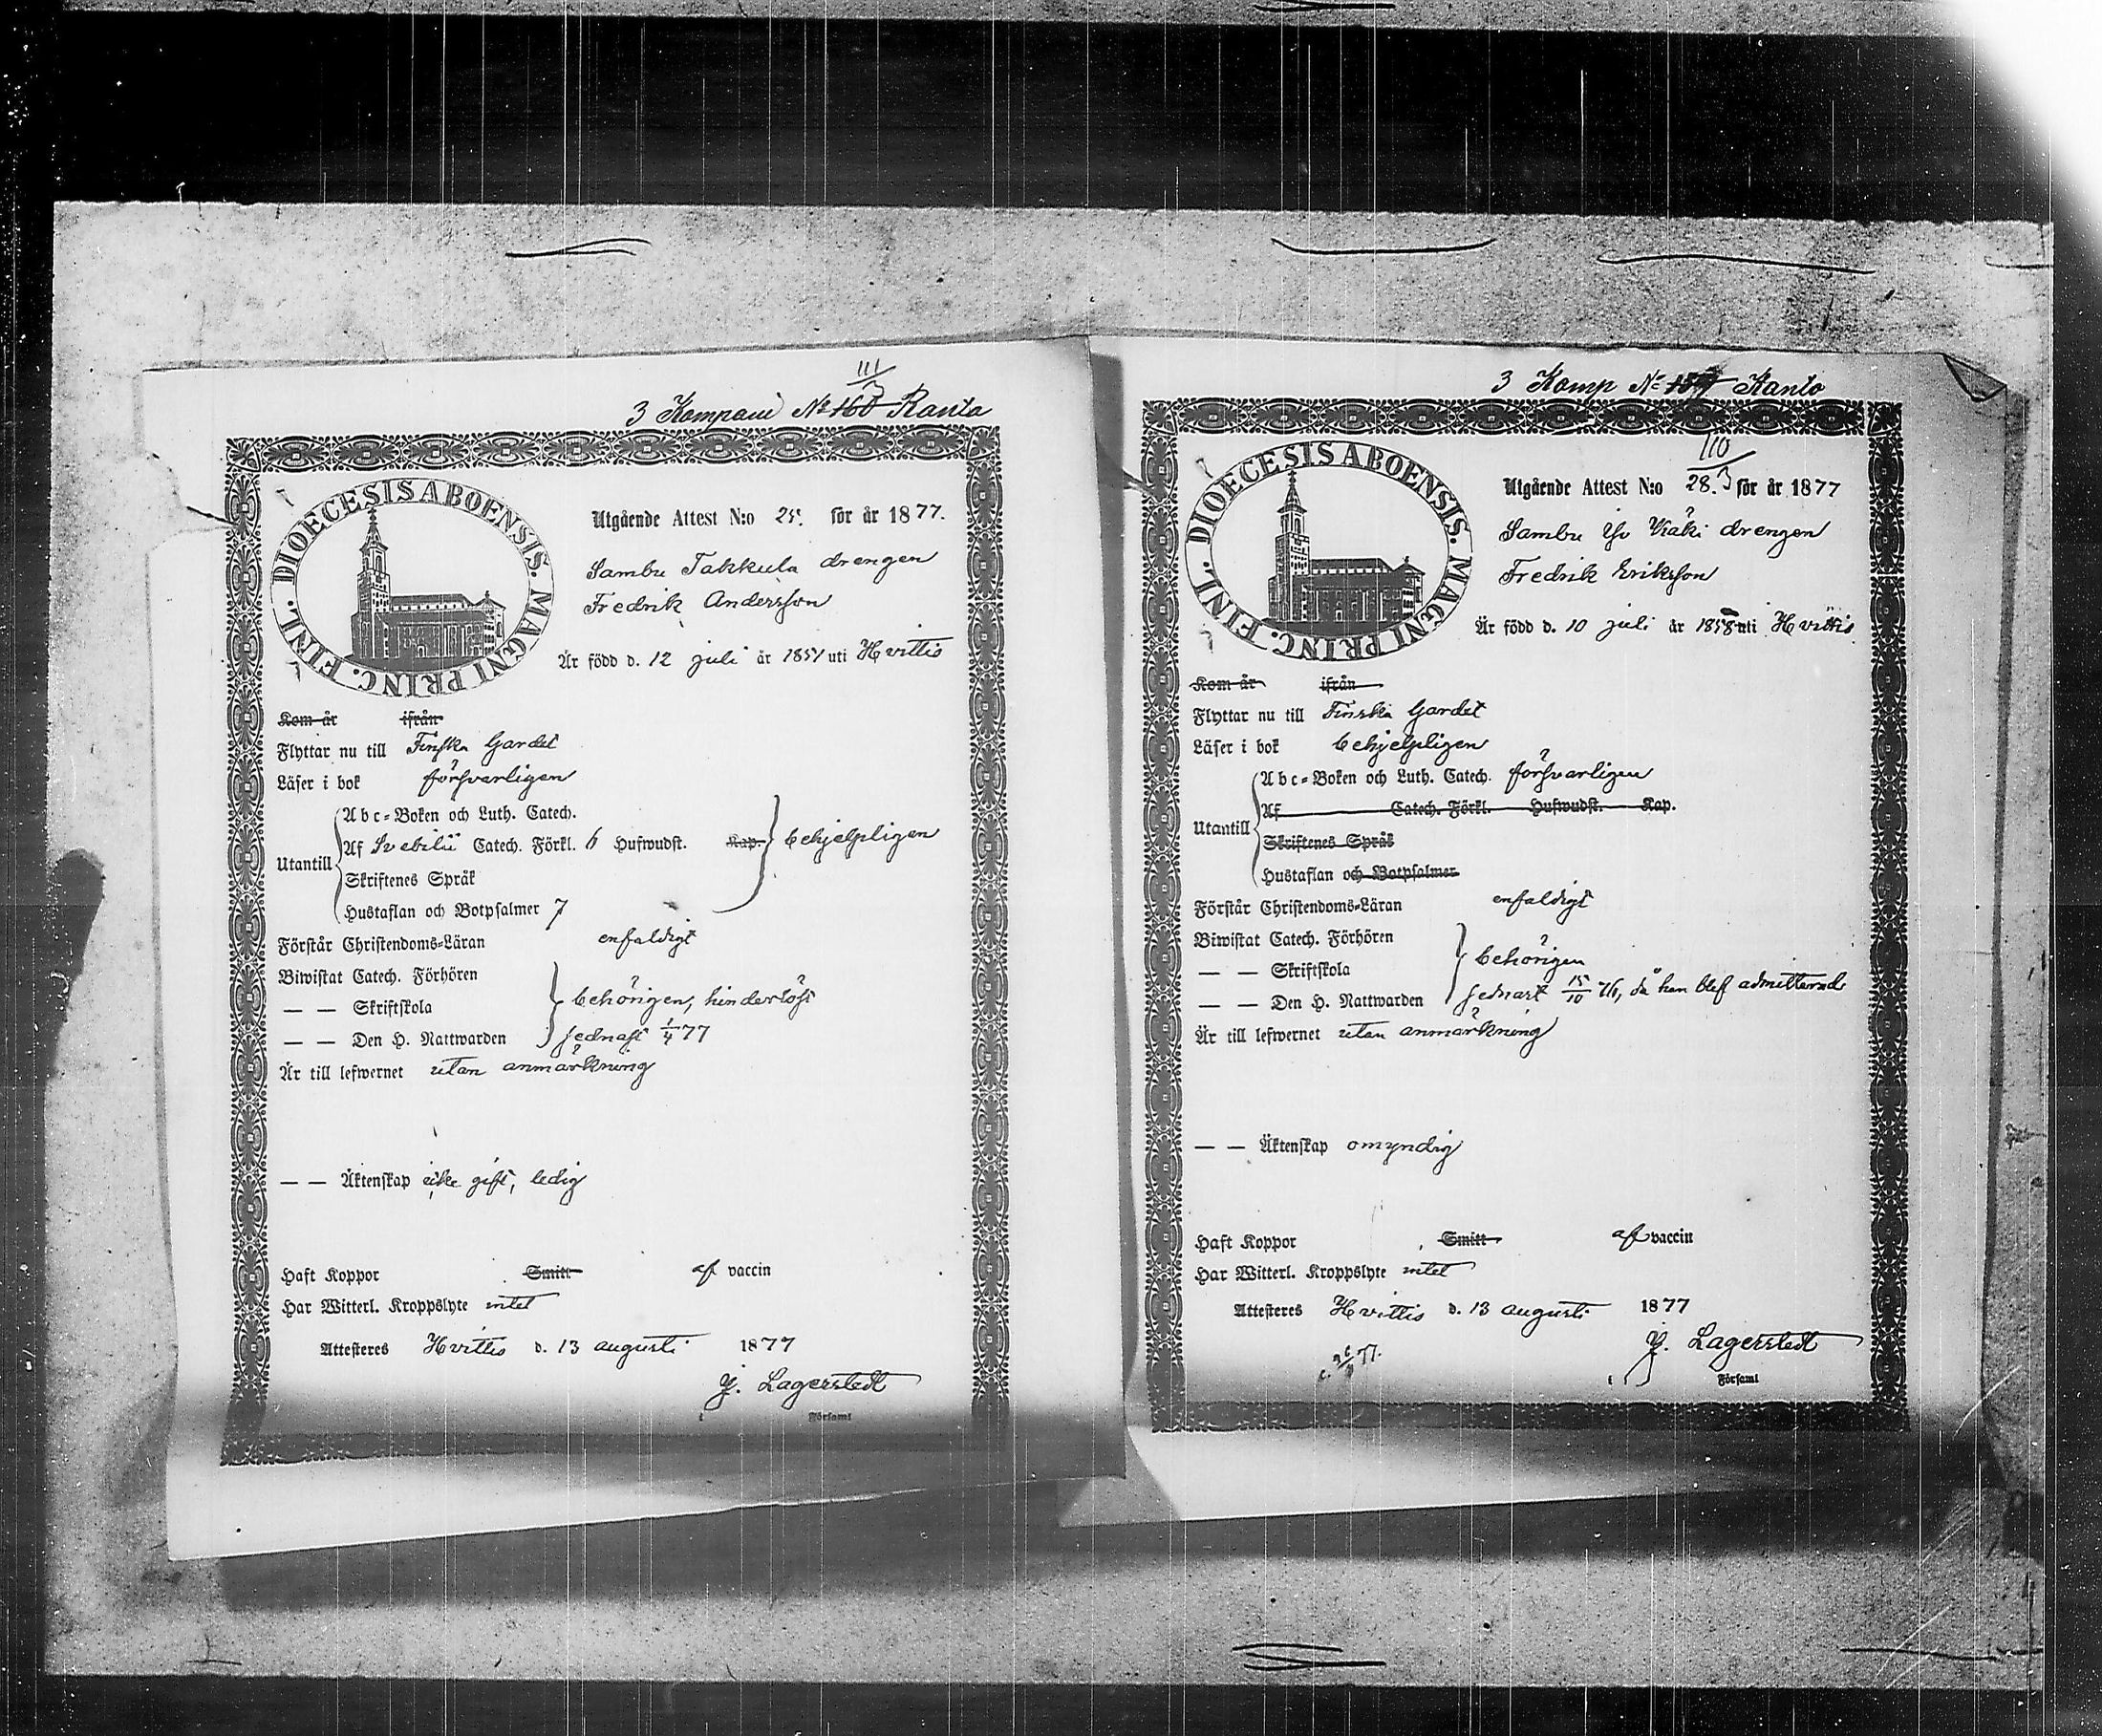 111/3
3 Kompani No 160 Ranta
DIOECESIS ABOENSIS. MAGNI PRINC. FINL.
Utgående Attest N:o 25. för år 1877.
Sambu Takkula drengen
Fredrik Andersson
Är född d. 12 juli år 1851 uti Hvittis
Kom år ifrån
Flyttar nu till Finska Gardet
Läser i bok försvarligen
Utantill
Abc-Boken och Luth. Catech.
Af Svebilii Catech. Förkl. 6 Hufwudst. Kap. behjelpligen
Skriftenes Språk
Hustaflan och Botpsalmer 7
Förstår Christendoms-Läran enfaldigt
Biwistat Catech. Förhören
— — Skriftskola behörigen, hinderlöst
— — Den H. Nattwarden sednast 1/4 77
Är till lefwernet utan anmärkning
— — Äktenskap icke gift, ledig
Haft Koppor Smitt af vaccin
Har Witterl. Kroppslyte intet
Attesteres Hvittis d. 13 augusti 1877
Lagerstedt
i Församl
3 Komp No Kanto
DIOECESIS ABOENSIS. MAGNI PRINC. FINL.
110/3
Utgående Attest N:o 28. för år 1877
Sambu drengen
Fredrik Eriksson
Är född d. 10 juli år 1858 uti Hvittis
Kom år ifrån
Flyttar nu till Finska Gardet
Läser i bok behjelpligen
Utantill
Abc-Boken och Luth. Catech. försvarligen
Af Catech. Förkl. Hufwudst. Kap.
Skriftenes Språk
Hustaflan och Botpsalmer
Förstår Christendoms-Läran enfaldigt
Biwistat Catech. Förhören
— — Skriftskola behörigen
— — Den H. Nattwarden sednast 15/10 76, då han blef admitterad
Är till lefwernet utan anmärkning
— — Äktenskap omyndig
Haft Koppor Smitt af vaccin
Har Witterl. Kroppslyte intet
Attesteres Hvittis d. 13 augusti 1877
Lagerstedt
i Församl